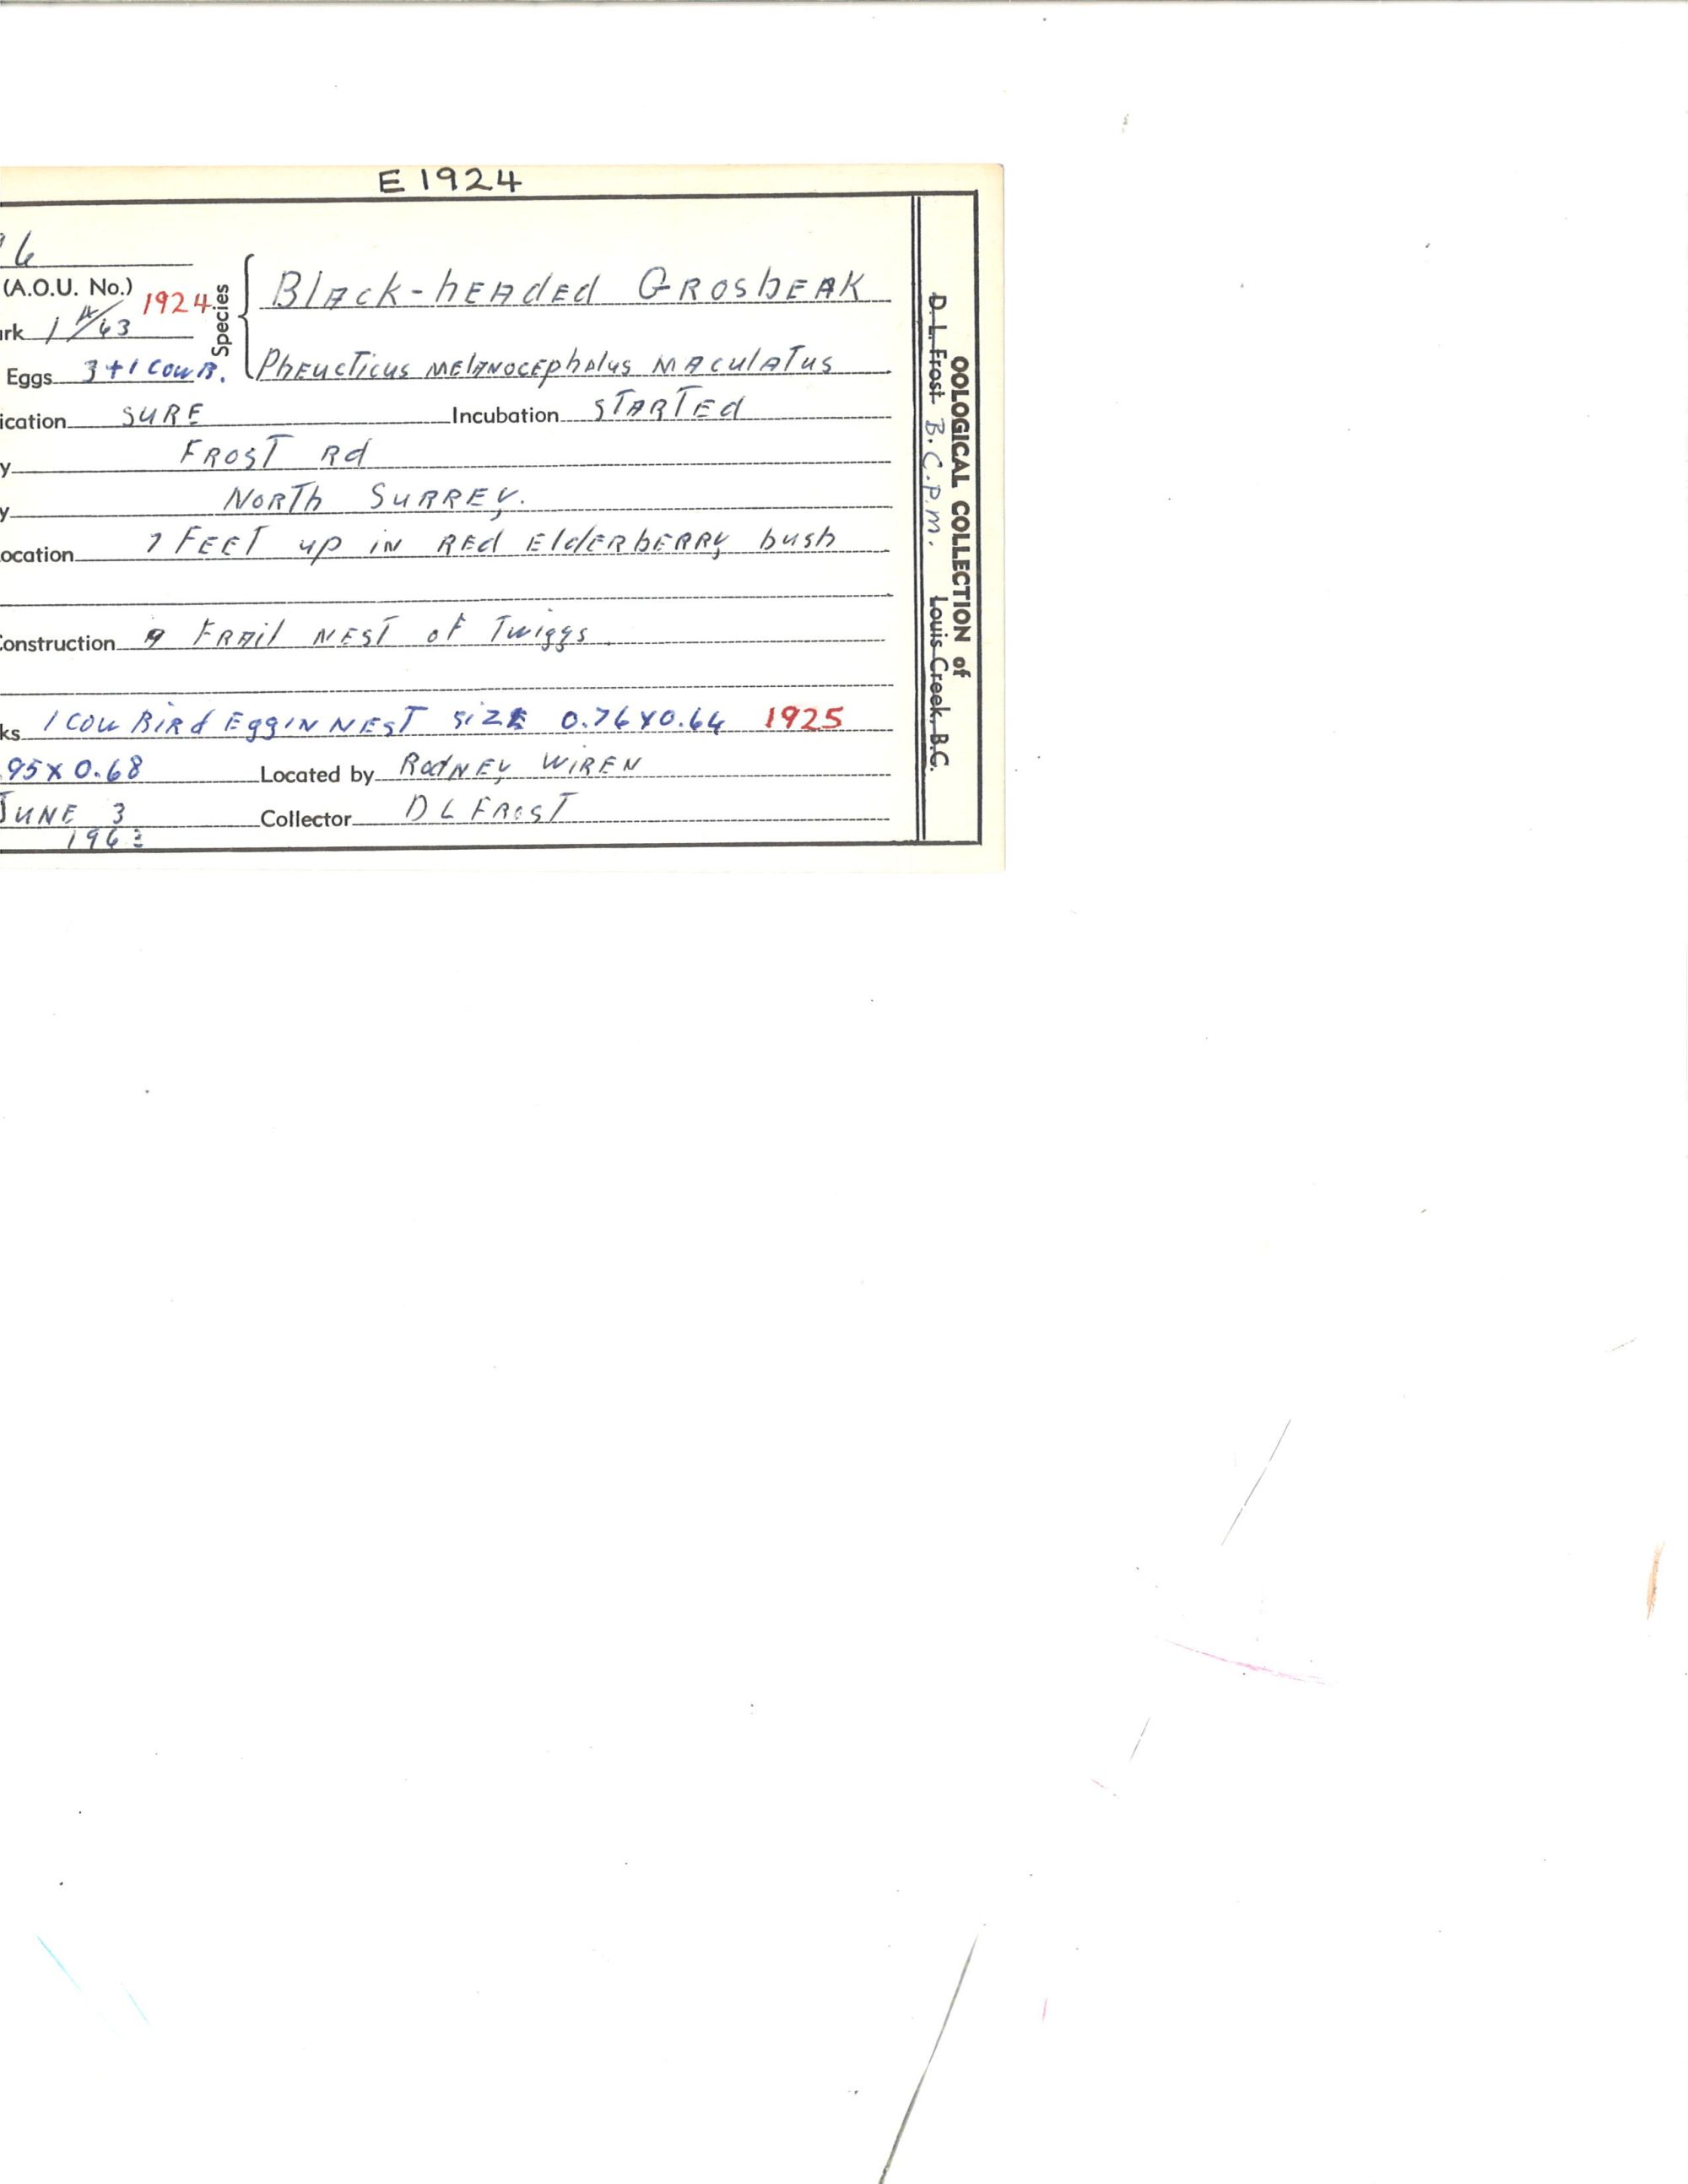 E 1924
96
(A.O.U. No.) 1924
Species
Black-headed Grosbeak
ark 1 4/63
Eggs 3+1 CowB. Pheucticus melanocephalus maculatus
ication SURE Incubation STARTED
y FROST Rd
y NORTH SURREY.
ocation 7 FEET up in RED ElderBERRY bush
Construction A FRAil NEST of Twiggs
ks 1 Cow Bird Egg in NEST SIZE 0.76x0.64 1925
95x0.68 Located by RODNEY WIREN
JUNE 3 Collector D L FROST
1963
OOLOGICAL COLLECTION of
D. L. Frost B.C.P.M. Louis Creek, B.C.